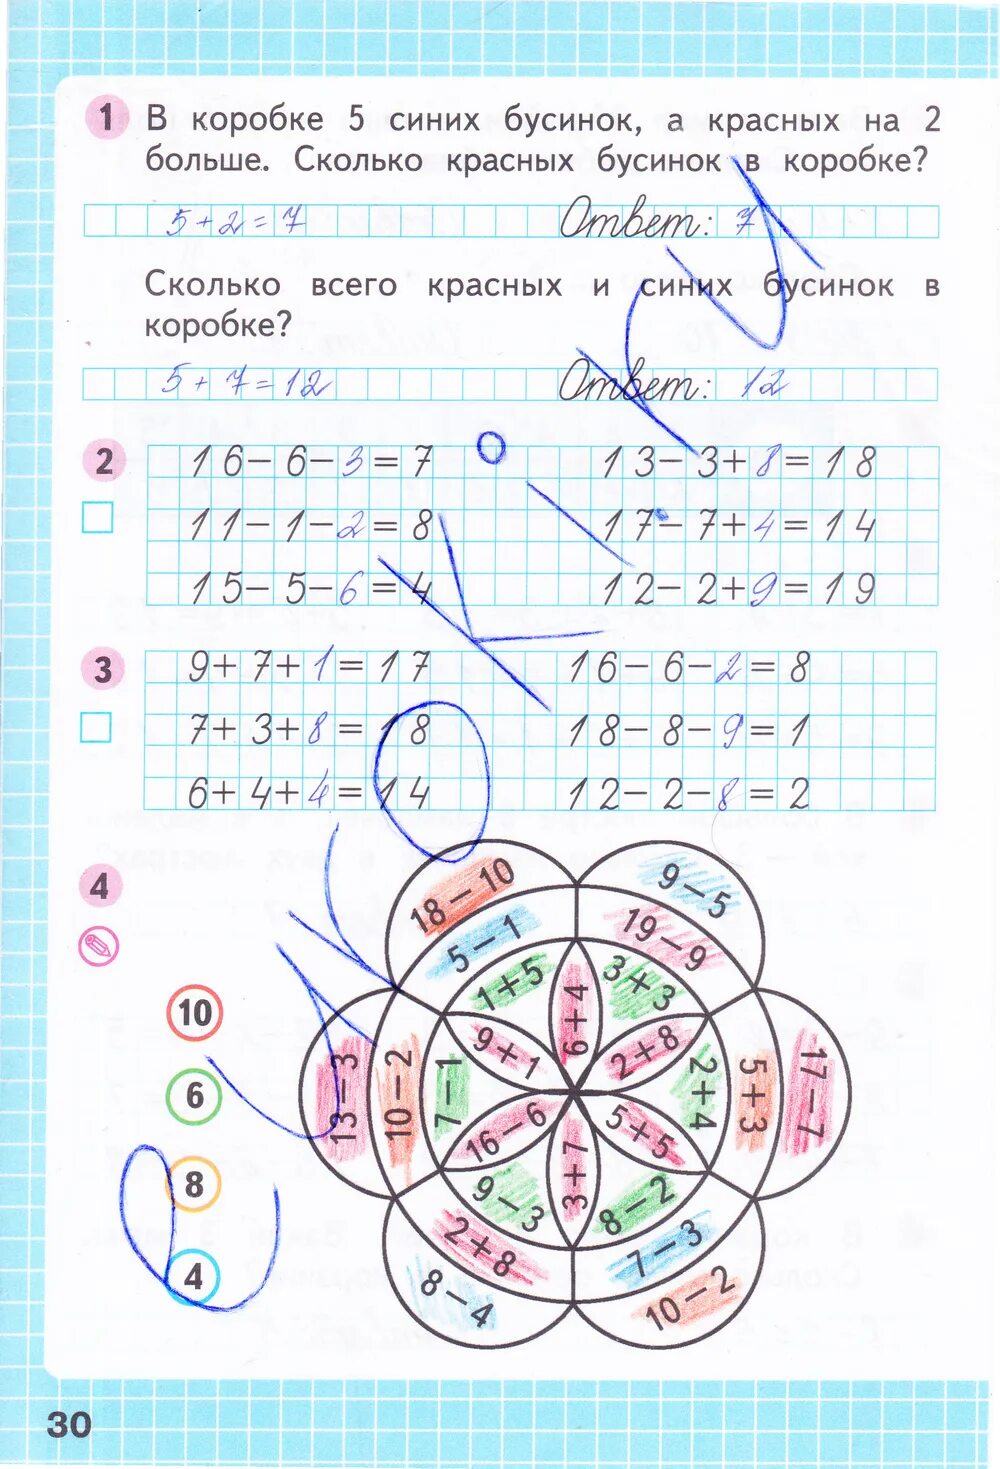 1 В коробке 5 синих бусинок, а красных на 2
больше. Сколько красных бусинок в коробке?
5+2=7 Ответ: 7
Сколько всего красных и синих бусинок в
коробке?
5+7=12 Ответ: 12
2 16-6-3=7 13-3+8=18
11-1-2=8 17-7+4=14
15-5-6=4 12-2+9=19
3 9+7+1=17 16-6-2=8
7+3+8=18 18-8-9=1
6+4+4=14 12-2-8=2
4
18-10 9-5
5-1 19-9
1+5 3+3
6+4
9+1 2+8
13-3 10-2 7-1 2+4 5+3 17-7
16-6 5+5
3+7
9-3 8-2
2+8 7-3
8-4 10-2
10
6
8
4
30